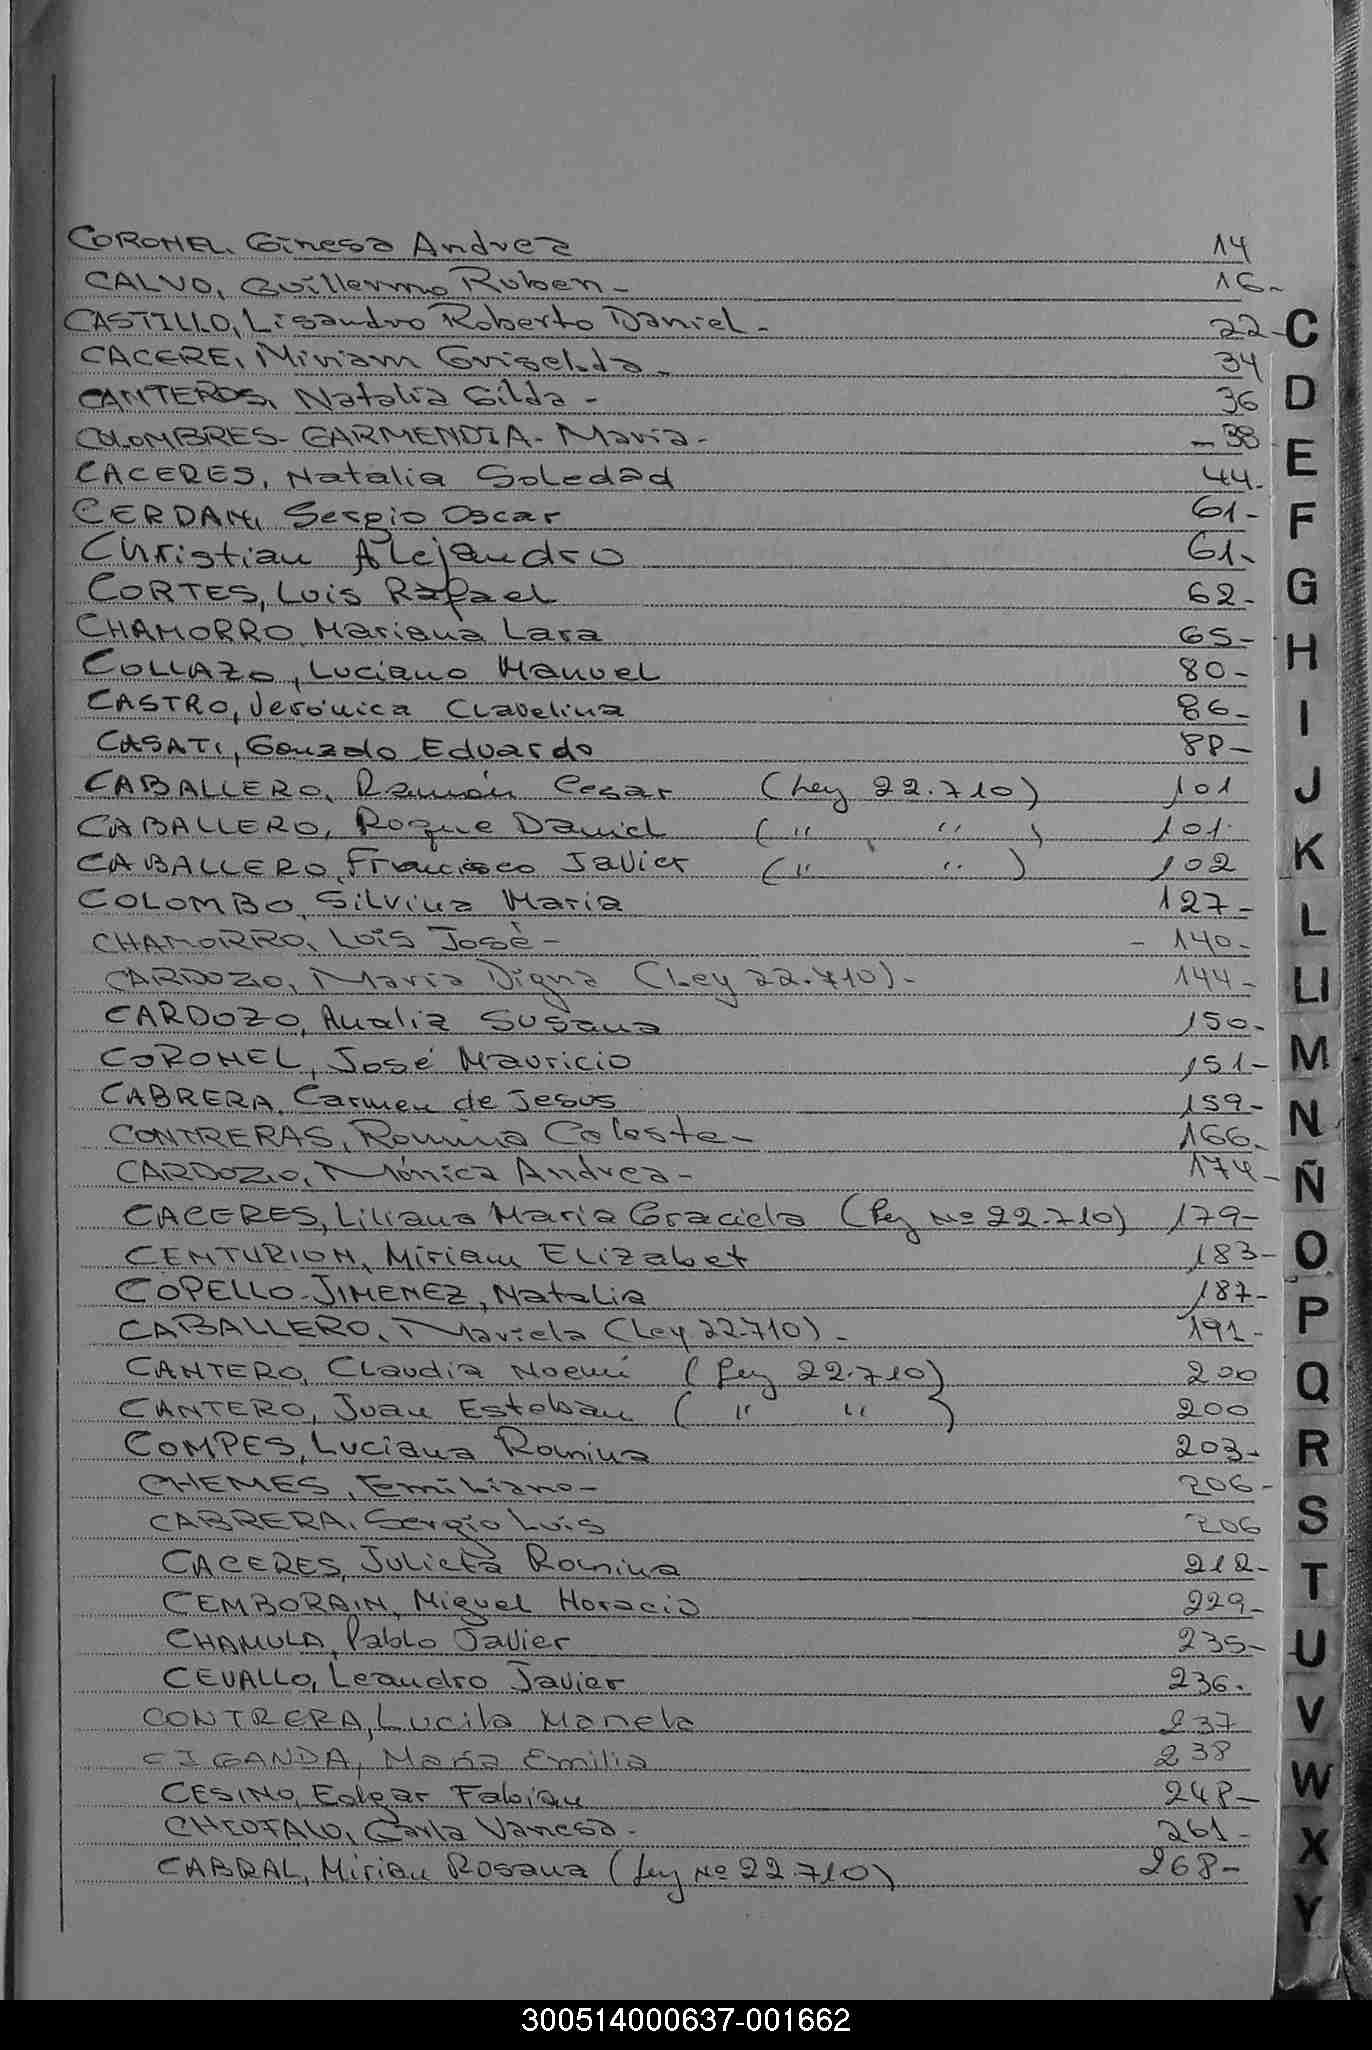 CORONEL. Ginesa Andrea 14
CALVO, Guillermo Ruben - 16-
CASTILLO, Lisandro Roberto Daniel - 22-
CACERE, Miriam Griselda. 34
CANTEROS, Natalia Gilda - 36
COLOMBRES - GARMENDIA - Maria - - 38
CACERES, Natalia Soledad 44-
CERDAN, Sergio Oscar 61-
Christian Alejandro 61-
CORTES, Luis Rafael 62-
CHAMORRO Mariana Lara 65-
COLLAZO, Luciano Manuel 80-
CASTRO, Verónica Clavelina 86-
CASATI, Gonzalo Eduardo 88-
CABALLERO, Ramón Cesar (Ley 22.710) 101
CABALLERO, Roque Daniel ( " " ) 101-
CABALLERO, Francisco Javier ( " " ) 102
COLOMBO, Silvina Maria 127-
CHAMORRO, Luis José - - 140-
CARDOZO, Maria Digna (Ley 22.710) - 144-
CARDOZO, Analia Susana 150-
CORONEL, José Mauricio 151-
CABRERA, Carmen de Jesus 159-
CONTRERAS, Romina Celeste - 166-
CARDOZO, Mónica Andrea - 174-
CACERES, Liliana Maria Graciela (Ley Nº 22.710) 179-
CENTURION, Miriam Elizabet 183-
COPELLO-JIMENEZ, Natalia 187-
CABALLERO, Mariela (Ley 22.710) - 191-
CANTERO, Claudia Noemí (Ley 22.710) 200
CANTERO, Juan Esteban ( " " ) 200
COMPES, Luciana Romina 203-
CHEMES, Emiliano - 206-
CABRERA, Sergio Luis 206
CACERES, Julieta Romina 212-
CEMBORAIN, Miguel Horacio 229-
CHAMULA, Pablo Javier 235-
CEVALLO, Leandro Javier 236.
CONTRERA, Lucila Mariela 237
CIGANDA, María Emilia 238
CESINO, Edgar Fabian 248-
CHIOFALO, Carla Vanesa - 261-
CABRAL, Mirian Rosana (Ley Nº 22.710) 268-
C
D
E
F
G
H
I
J
K
L
Ll
M
N
Ñ
O
P
Q
R
S
T
U
V
W
X
Y
300514000637-001662